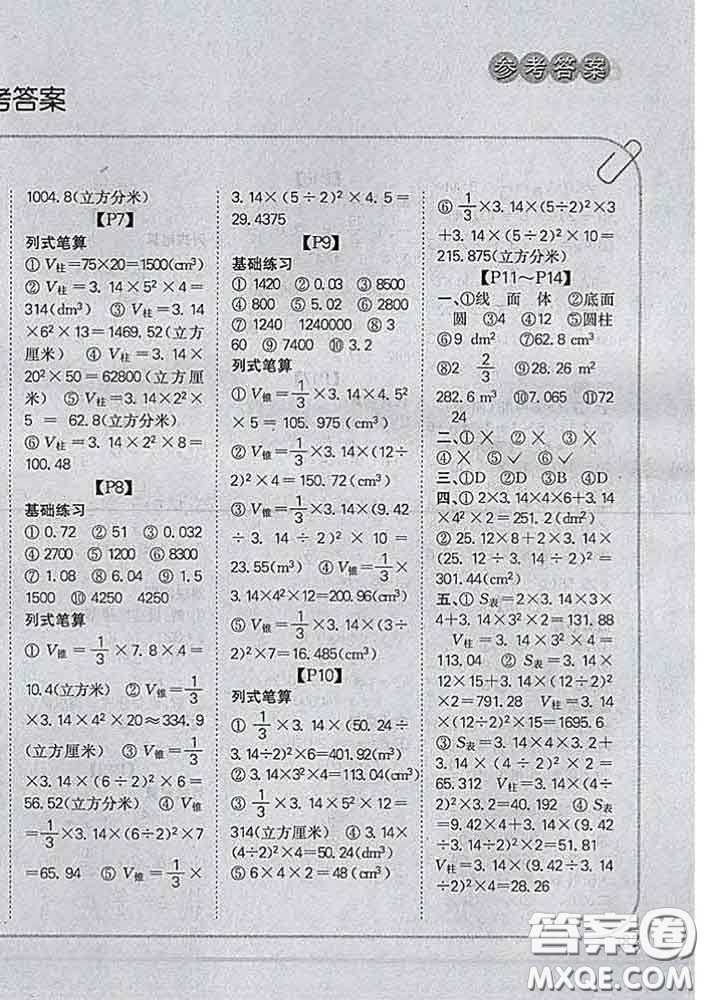 参考答案
考答案
1004.8(立方分米)
【P7】
列式笔算
① V柱=75×20=1500(cm³)
② V柱=3.14×5²×4=
314(dm³) ③ V柱=3.14
×6²×13=1469.52(立方
厘米) ④ V柱=3.14×
20²×50=62800(立方厘
米) ⑤ V柱=3.14×2²×
5 = 62.8(立方分米)
⑥ V柱=3.14×2²×8=
100.48
【P8】
基础练习
① 0.72 ② 51 ③ 0.032
④ 2700 ⑤ 1200 ⑥ 8300
⑦ 1.08 ⑧ 6.04 ⑨ 1.5
1500 ⑩ 4250 4250
列式笔算
① V锥=1/3×7.8×4=
10.4(立方米) ② V锥=1/3
×3.14×4²×20≈334.9
(立方厘米) ③ V锥=1/3
×3.14×(6÷2)²×6=
56.52(立方分米) ④ V锥=
1/3×3.14×(6÷2)²×7
=65.94 ⑤ V锥=1/3×
3.14×(5÷2)²×4.5=
29.4375
【P9】
基础练习
① 1420 ② 0.03 ③ 8500
④ 800 ⑤ 5.02 ⑥ 2800
⑦ 1240 1240000 ⑧ 3
60 ⑨ 7400 ⑩ 3.2
列式笔算
① V锥=1/3×3.14×4.5²
×5=105.975(cm³)
② V锥=1/3×3.14×(12÷
2)²×4=150.72(cm³)
③ V锥=1/3×3.14×(9.42
÷3.14÷2)²×10=
23.55(m³) ④ V锥=1/3×
3.14×4²×12=200.96(cm³)
⑤ V锥=1/3×3.14×(3÷
2)²×7=16.485(cm³)
【P10】
列式笔算
① 1/3×3.14×(50.24÷
3.14÷2)²×6=401.92(m³)
② 3.14×3²×4=113.04(cm³)
③ 1/3×3.14×5²×12=
314(立方厘米) ④ 3.14×
(4÷2)²×4=50.24(dm³)
⑤ 6×4×2=48(cm³)
⑥ 1/3×3.14×(5÷2)²×3
+3.14×(5÷2)²×10=
215.875(立方分米)
【P11～P14】
一、①线 面 体 ②底面
圆 ③4 ④12 ⑤圆柱
⑥9 dm² ⑦62.8 cm³
⑧2 2/3 ⑨28.26 m²
282.6 m³ ⑩7.065 ⑪72
24
二、①× ②× ③×
④× ⑤✓ ⑥✓
三、①D ②D ③B ④D
四、① 2×3.14×4×6+3.14
×4²×2=251.2(dm²)
② 25.12×8+2×3.14×
(25.12÷3.14÷2)²=
301.44(cm²)
五、① S表=2×3.14×3×
4+3.14×3²×2=131.88
V柱=3.14×3²×4=
113.04 ② S表=3.14×
12×15+3.14×(12÷
2)²×2=791.28 V柱=3.14
×(12÷2)²×15=1695.6
③ S表=3.14×4×3.2+
3.14×(4÷2)²×2=
65.312 V柱=3.14×(4÷
2)²×3.2=40.192 ④ S表
=9.42×4+3.14×(9.42÷
3.14÷2)²×2=51.81
V柱=3.14×(9.42÷3.14
÷2)²×4=28.26
答案圈
MXQE.COM